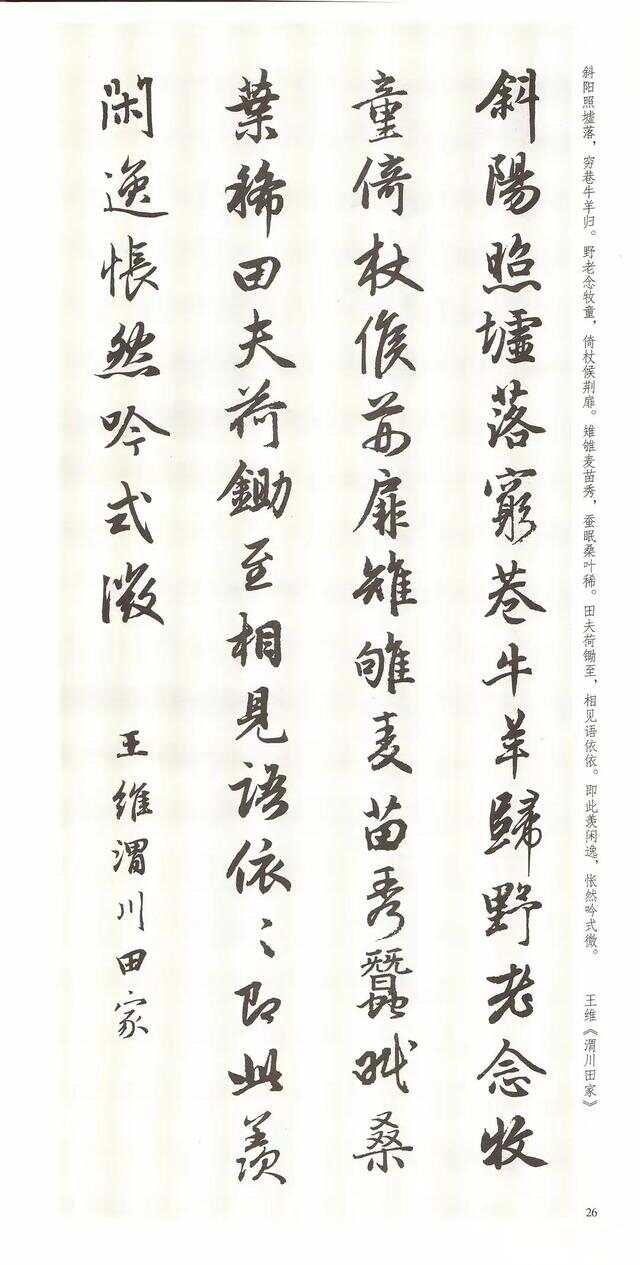 斜阳照墟落，穷巷牛羊归。野老念牧童，倚杖候荆扉。雉雊麦苗秀，蚕眠桑叶稀。田夫荷锄至，相见语依依。即此羡闲逸，怅然吟式微。 王维《渭川田家》
斜陽照墟落窮巷牛羊歸野老念牧
童倚杖候荊扉雉雊麦苗秀蠶眠桑
葉稀田夫荷鋤至相見語依〻即此羨
閑逸悵然吟式微 王維渭川田家
26